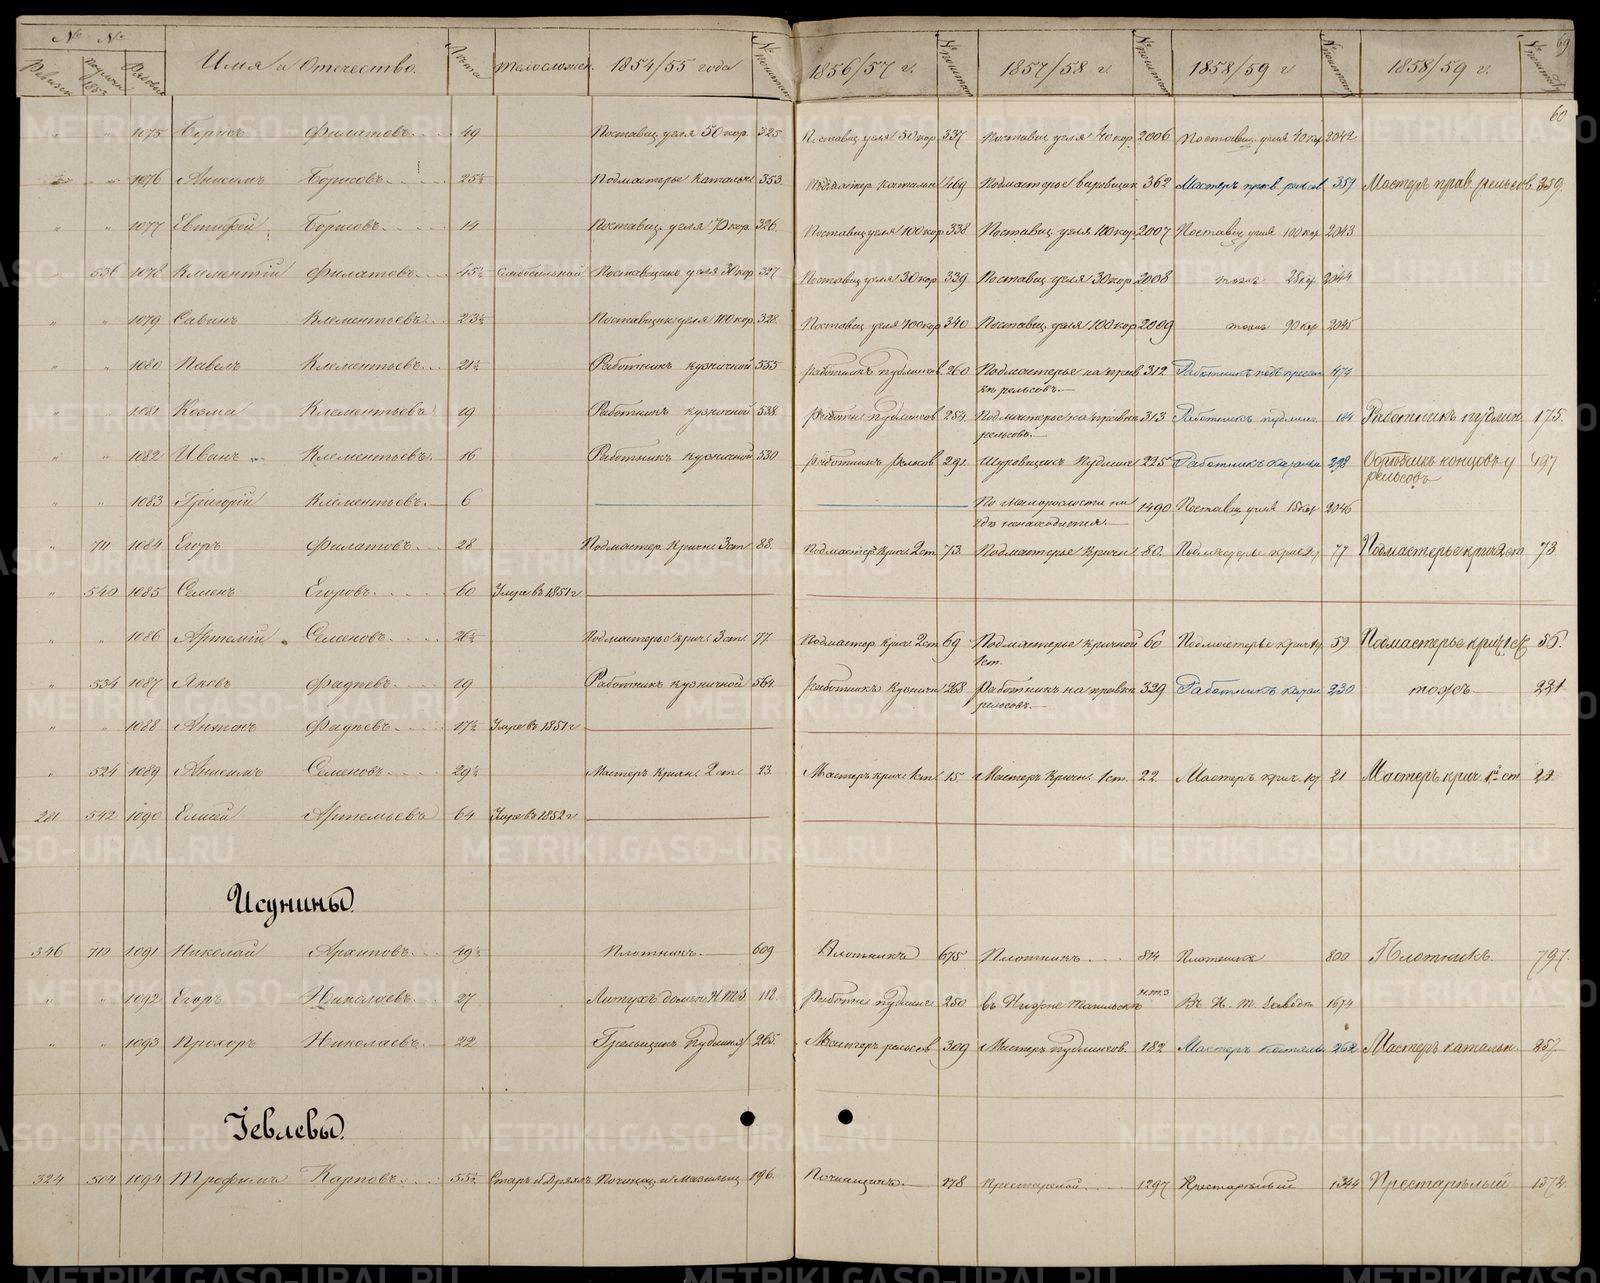 № № Имя и Отечество Лѣта тѣлосложен. 1854/55 года № 1856/57 г. № 1857/58 г. № 1858/59 г № 1858/59 г. № 69
60
" " 1075 Борисъ Филатовъ 49 Поставщ. угля 50 кор. 325 Поставщ. угля 50 кор 337 Поставщ. угля 40 кор. 2006 Поставщ. угля 40 кор 2042
" " 1076 Анисимъ Борисовъ 25½ Подмастерье катальн. 353 Подмастер. катальн. 469 Подмастерье варовщик 362 Мастеръ прав. рельсов 357 Мастеръ прав. рельсов. 359.
" " 1077 Евтифей Борисовъ 14 Поставщ. угля 70 кор. 326 Поставщ. угля 100 кор 338 Поставщ. угля 100 кор 2007 Поставщ. угля 100 кор 2043
" 536 1078 Клементий Филатовъ 45½ Слабосильной Поставщикъ угля 30 кор 327 Поставщ. угля 30 кор 339 Поставщ. угля 30 кор 2008 тоже 25 кор 2044
" " 1079 Савинъ Клементьевъ 23½ Поставщик угля 100 кор. 328 Поставщ. угля 100 кор 340 Поставщ. угля 100 кор 2009 тоже 90 кор 2045
" " 1080 Павелъ Клементьевъ 21½ Работникъ кузничной 555 работникъ пудлингов. 260 Подмастерье на правкѣ рельсовъ 312 Работникъ подъ прессом 474
" " 1081 Козма Клементьевъ 19 Работникъ кузничной 538 работн. пудлингов 284 Подмастерье на правкѣ рельсовъ 313 Работникъ пудлинг. 184 Работникъ пудлин. 175.
" " 1082 Иванъ Клементьевъ 16 Работникъ кузничной 530 работникъ рельсов 291 Шуровщикъ Пудлинг 225 Работникъ катальн 298 Обрѣзчик концовъ у рельсовъ 497
" " 1083 Григорий Клементьевъ 6 По малорослости нигдѣ ненаходится. 1490 Поставщ. угля 15 кор 2046
" 711 1084 Егоръ Филатовъ 28 Подмастер. Кричн. 3 ст. 88. Подмастер. Крич. 2 ст 73. Подмастерье Кричн. 80. Подмастерье крич. 77 Подмастерье крич. 2 ст 73.
" 540 1085 Семенъ Егоровъ 60 Умре въ 1851 г
" " 1086 Артемий Семеновъ 26½ Подмастерье крич. 3 ст. 77 Подмастер. Крич. 2 ст 69 Подмастерье Кричной 1 ст. 60 Подмастерье крич. 59 Подмастерье крич. 1 ст 56.
" 534 1087 Яковъ Фадѣевъ 29 Работникъ кузничной 564 работникъ Кузничн. 268 Работникъ на правкѣ рельсовъ 329 Работникъ катал. 230 тоже 221
" " 1088 Антонъ Фадѣевъ 17½ Умре въ 1851 г
" 524 1089 Анисимъ Семеновъ 29½ Мастеръ Кричн. 2 ст. 23. Мастеръ крич. 1 ст. 15. Мастеръ Кричн. 1 ст. 22. Мастеръ крич. 21 Мастеръ крич. 1й ст. 22
281 542 1090 Елисей Артемьевъ 64 Умре въ 1852 г
Исунины
346 719 1091 Николай Архиповъ 49½ Плотникъ 609 Плотникъ 675 Плотникъ 814 Плотникъ 800 Плотникъ 797.
" " 1092 Егоръ Николаевъ 27 118 Работн. пудлинг. 280 въ Нижне Тагильскѣ Въ Н. Т. Заводѣ 1674
" " 1093 Прохоръ Николаевъ 22 265. Мастеръ рельсов 309 Мастеръ пудлингов. 182 Мастеръ катальн. 262 Мастеръ катальн. 257.
Іевлевы.
324 504 1094 Трофимъ Карповъ 55½ Старъ и Дряхлъ 196. Починщикъ 178 Престарелой 1297 Престарѣлый 1344 Престарѣлый 1372.
METRIKI.GASO-URAL.RU